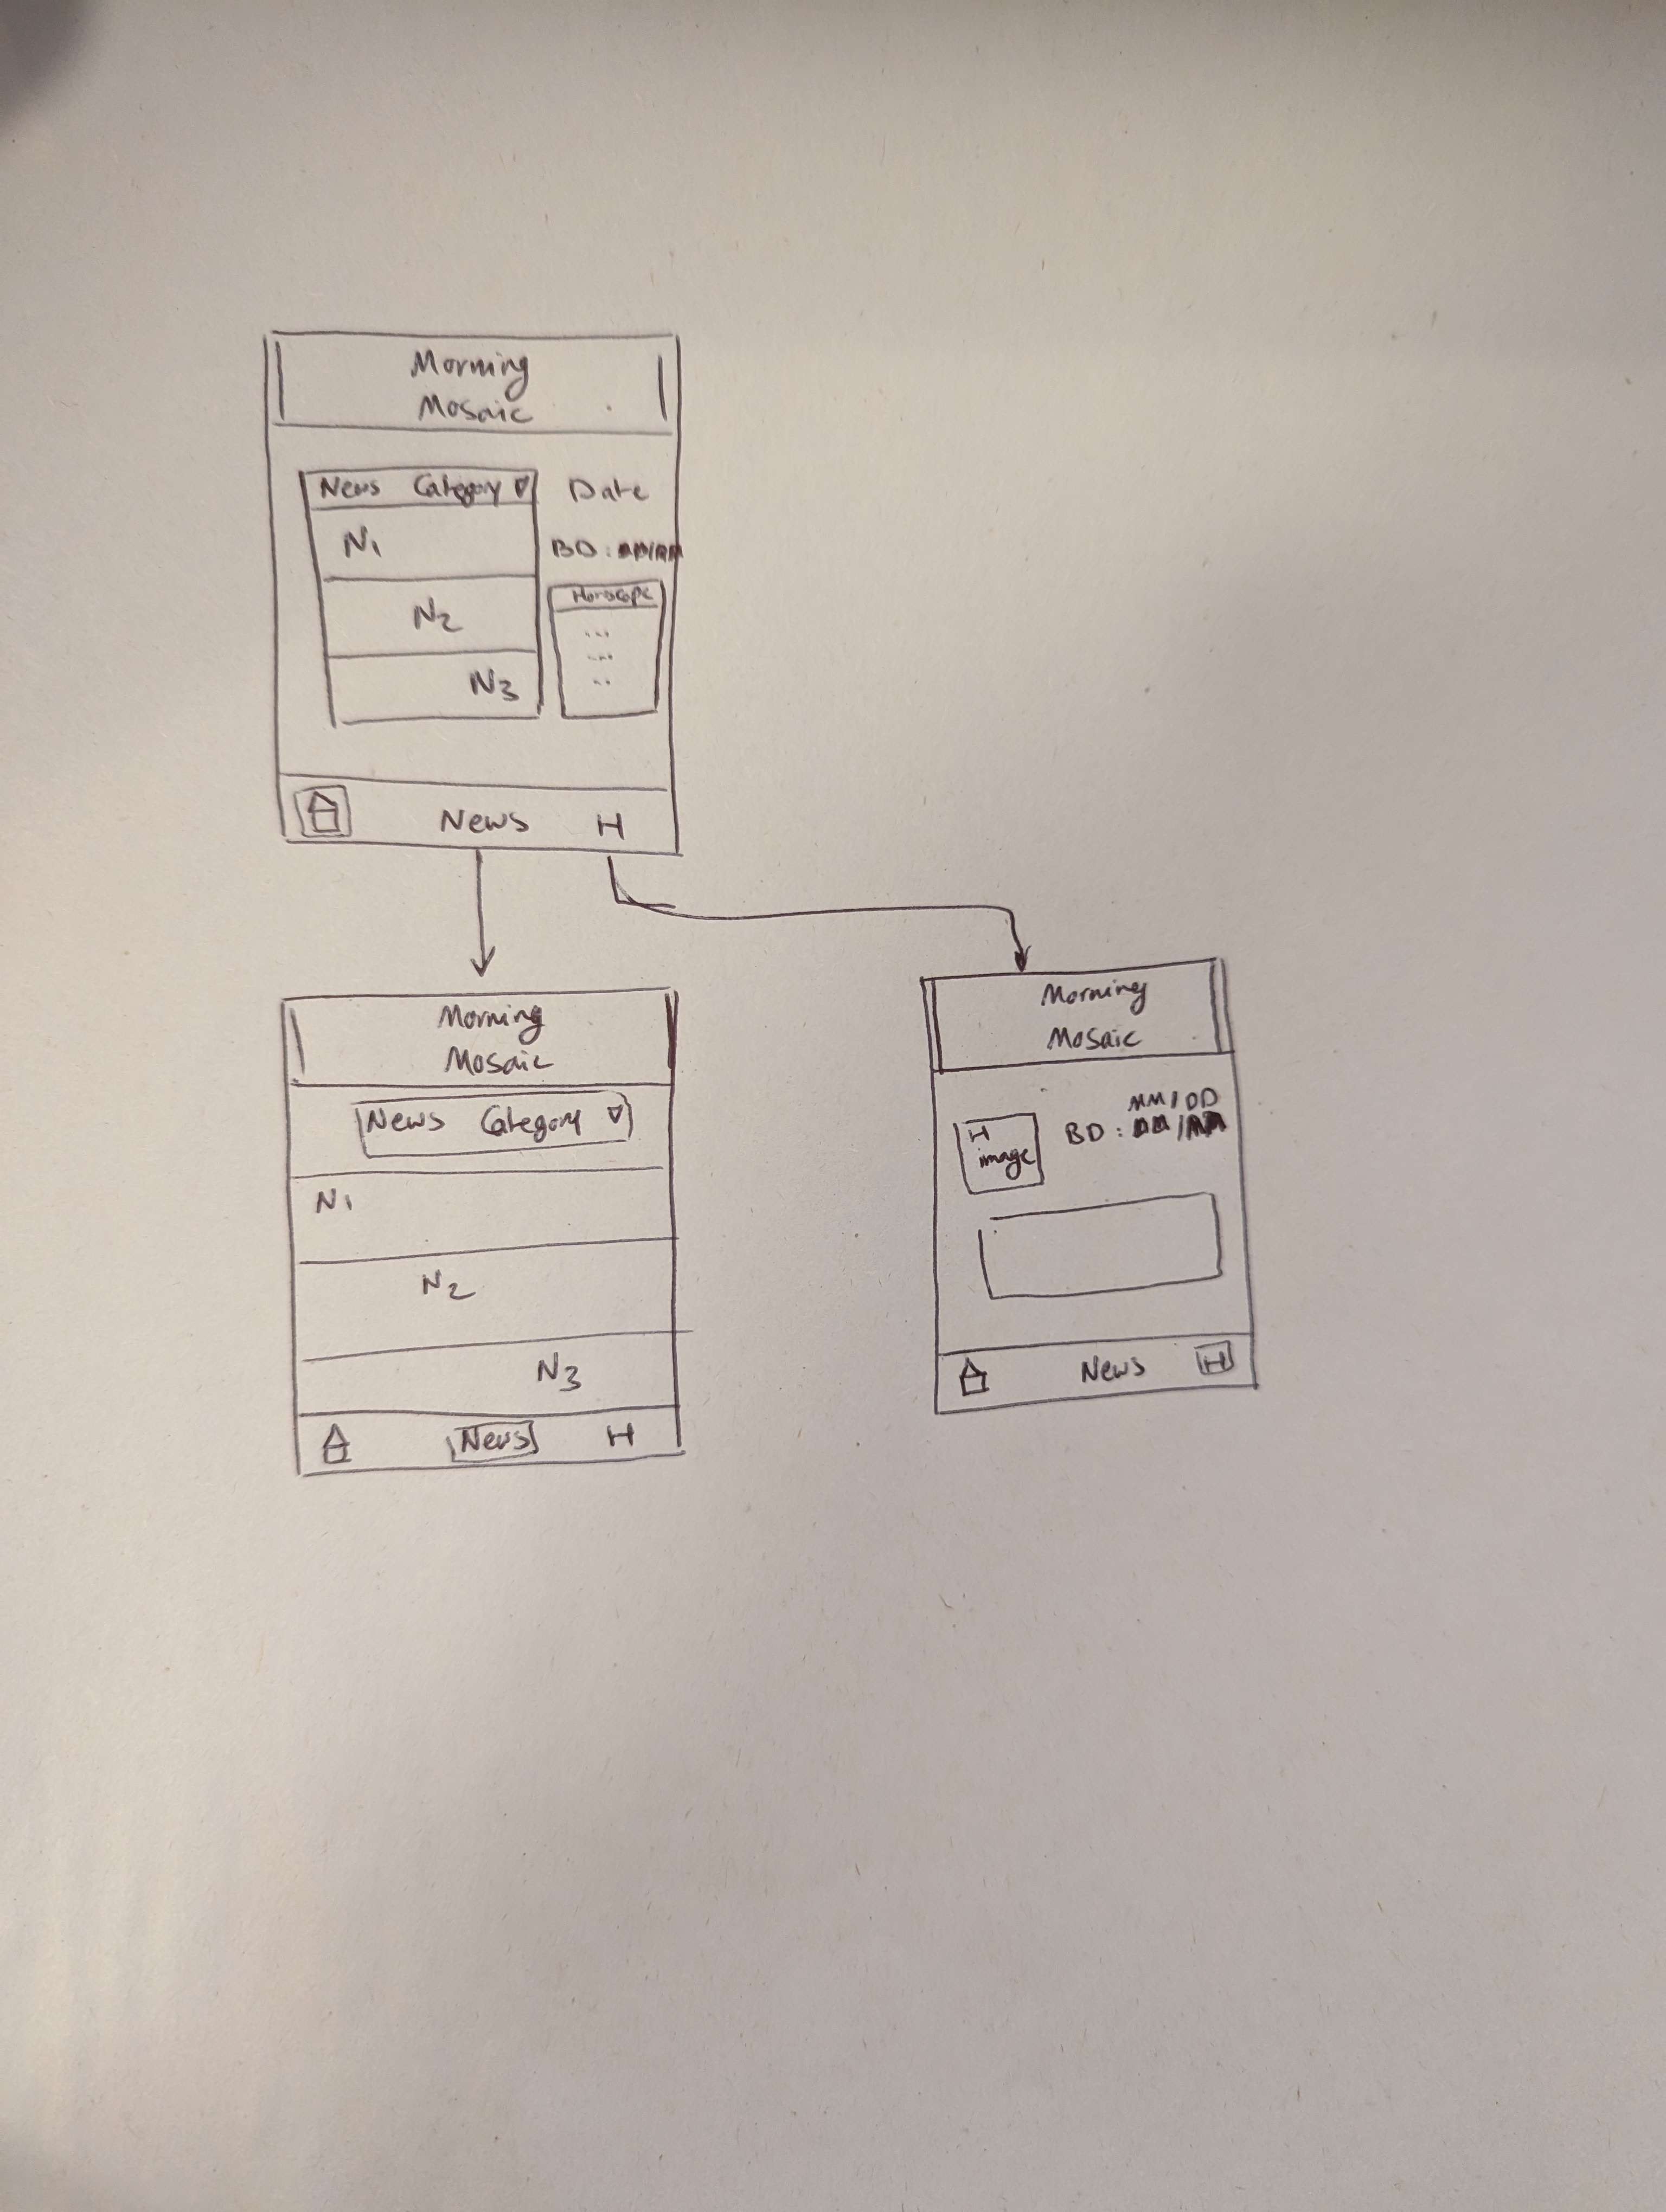 Morning
Mosaic
News Category
Date
N1
BD:
Horoscope
N2
N3
News H
Morning
Mosaic
News Category
N1
N2
N3
News H
Morning
Mosaic
MM/DD
BD:
H
image
News H